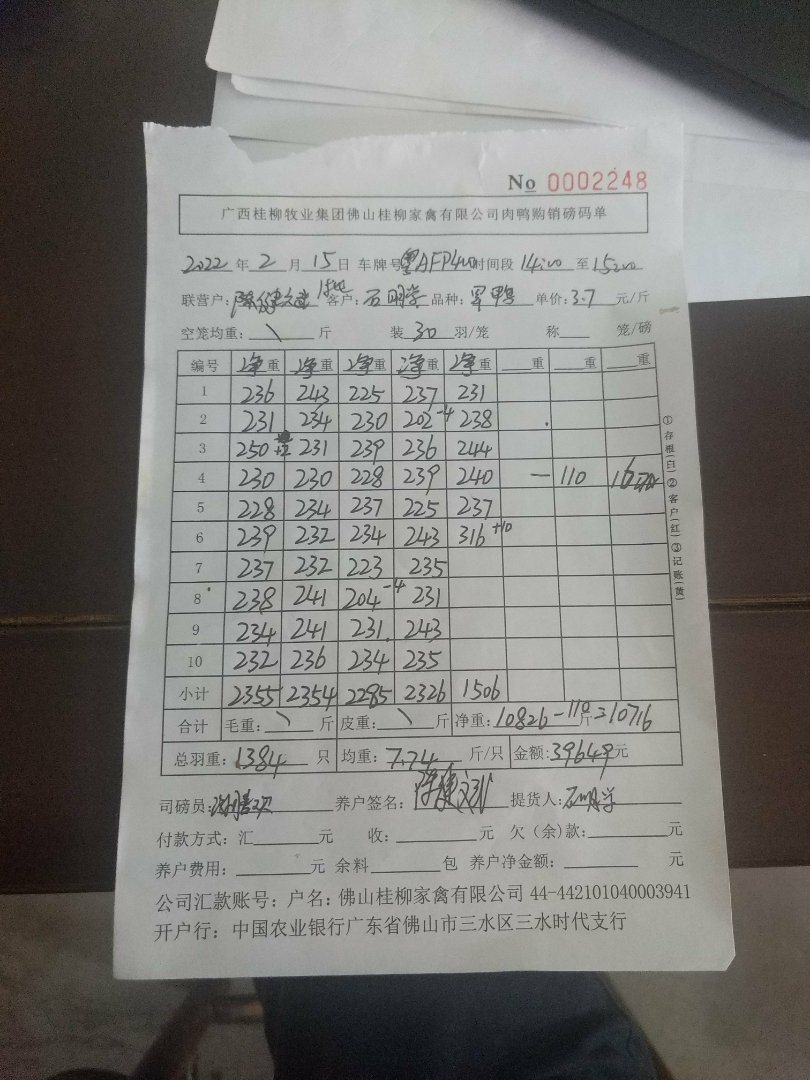 No 0002248
广西桂柳牧业集团佛山桂柳家禽有限公司肉鸭购销磅码单
2022 年 2 月 15 日 车牌号 AFP400 时间段 14:00 至 15:00
联营户: 客户: 石明学 品种: 单价: 3.7 元/斤
空笼均重: \ 斤 装 30 羽/笼 称 笼/磅
编号 净重 净重 净重 净重 净重 重 重 重
1 236 243 225 237 231
2 231 234 230 202 -4 238
3 250 +2 231 239 236 244
4 230 230 228 239 240 — 110 16
5 228 234 237 225 237
6 239 232 234 243 316 +10
7 237 232 223 235
8 238 241 204 -4 231
9 234 241 231 243
10 232 236 234 235
小计 2355 2354 2285 2326 1506
合计 毛重: \ 斤 皮重: \ 斤 净重: 10826-110斤=10716
总羽重: 1384 只 均重: 7.74 斤/只 金额: 39649元
司磅员: 养户签名: 提货人: 石明学
付款方式: 汇 元 收: 元 欠(余)款: 元
养户费用: 元 余料 包 养户净金额: 元
公司汇款账号: 户名: 佛山桂柳家禽有限公司 44-442101040003941
开户行: 中国农业银行广东省佛山市三水区三水时代支行
①存根(白)②客户(红)③记账(黄)